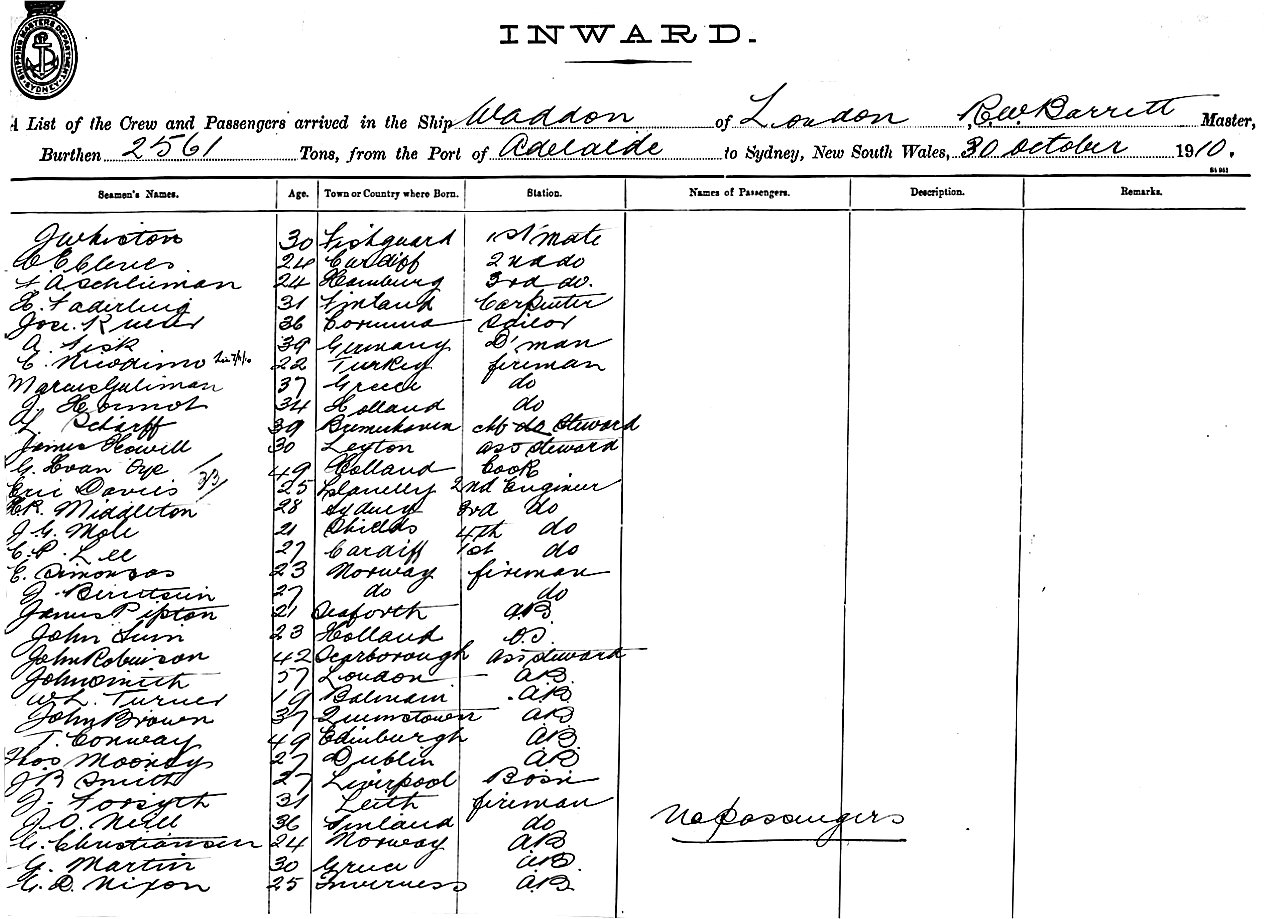 SHIPPING MASTERS DEPARTMENT SYDNEY
INWARD.
A List of the Crew and Passengers arrived in the Ship Waddon of London R.W. Barrett Master,
Burthen 2561 Tons, from the Port of Adelaide to Sydney, New South Wales, 30 October 1910.
Seamen's Names. Age. Town or Country where Born. Station. Names of Passengers. Description. Remarks.
30 Fishguard 1st mate
24 Cardiff 2nd do
F A Schluman 24 Hamburg 3rd do.
31 Finland Carpenter
36 Corunna Sailor
A. Fisk 39 Germany D'man
C. Nicodimo 22 Turkey fireman
Marcus Guliman 37 Greece do
34 Holland do
L. Scharff 39 Bremerhaven Steward
James Howell 30 Leyton ass steward
G. H van Oye 49 Holland Cook
Eric Davies 25 Llanelly 2nd Engineer
Middleton 28 Sydney 3rd do
J. G. Mole 21 Shields 4th do
C. P. Lee 27 Cardiff 1st do
E. Simonsos 23 Norway fireman
27 do do
James Pipton 21 Seaforth AB
John 23 Holland O.S.
John Robinson 42 Scarborough ass steward
John Smith 57 London AB
W L. Turner 19 Balmain AB
John Brown 37 Queenstown AB
T. Conway 49 Edinburgh AB
Thos Mooney 27 Dublin AB
J B Smith 27 Liverpool Bosn
J. Forsyth 31 Leith fireman
J. O. Neill 36 Finland do
No passengers
G. Christiansen 24 Norway AB
G. Martin 30 Greece AB.
G. D. Nixon 25 Inverness AB